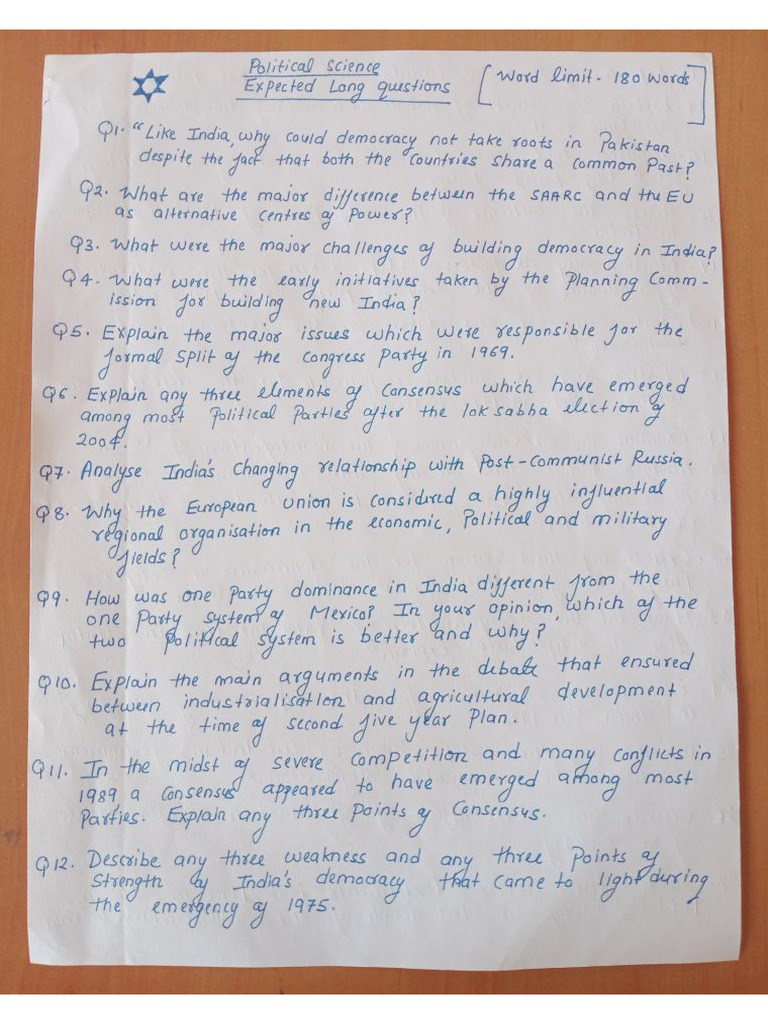 Political Science
Expected Long questions
[Word limit - 180 words]
Q1. "Like India, why could democracy not take roots in Pakistan
despite the fact that both the Countries share a Common Past?
Q2. What are the major difference between the SAARC and the EU
as alternative centres of Power?
Q3. What were the major challenges of building democracy in India?
Q4. What were the early initiatives taken by the Planning Comm-
ission for building new India?
Q5. Explain the major issues which were responsible for the
formal Split of the Congress Party in 1969.
Q6. Explain any three elements of Consensus which have emerged
among most Political Parties after the lok sabha election of
2004.
Q7. Analyse India's Changing relationship with Post-Communist Russia.
Q8. Why the European union is considered a highly influential
regional organisation in the economic, Political and military
fields?
Q9. How was one Party dominance in India different from the
one Party system of Mexico? In your opinion, which of the
two Political system is better and why?
Q10. Explain the main arguments in the debate that ensured
between industrialisation and agricultural development
at the time of second five year Plan.
Q11. In the midst of severe competition and many conflicts in
1989 a Consensus appeared to have emerged among most
Parties. Explain any three Points of Consensus.
Q12. Describe any three weakness and any three Points of
Strength of India's democracy that came to light during
the emergency of 1975.